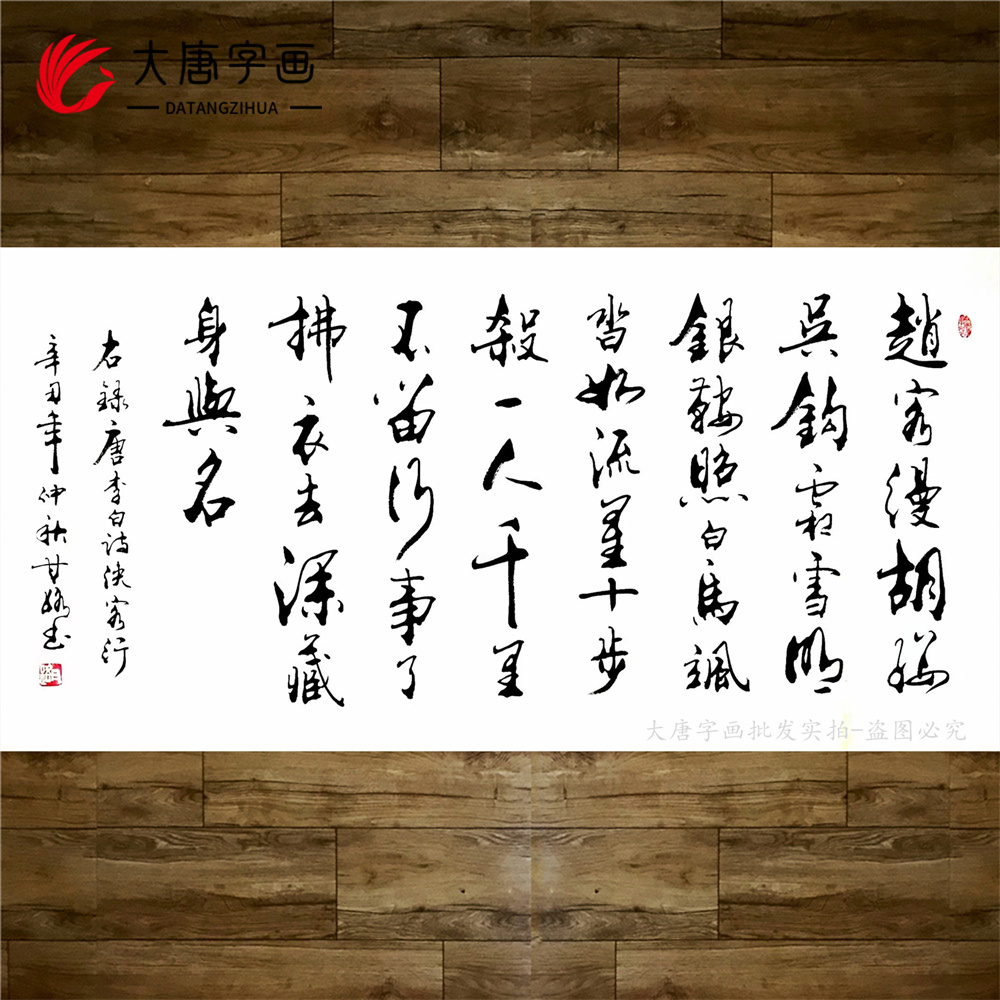 大唐字画
DATANGZIHUA
趙客縵胡纓
吳鉤霜雪明
銀鞍照白馬颯
沓如流星十步
殺一人千里
不留行事了
拂衣去深藏
身與名
右錄唐李白詩俠客行
辛丑年仲秋甘书
大唐字画批发实拍-盗图必究